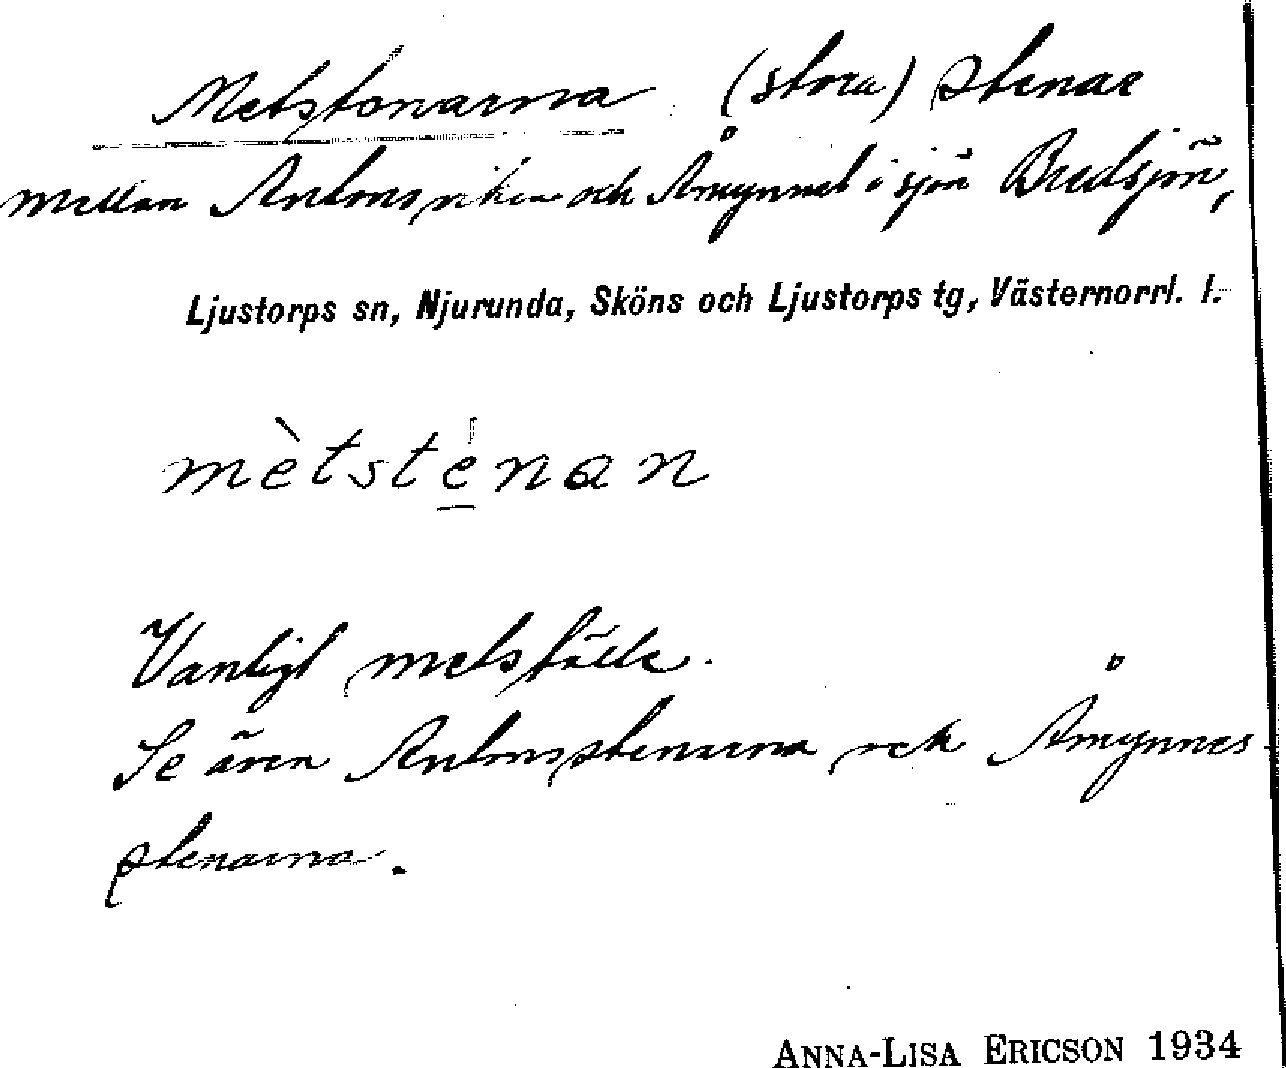 Metstenarna (stora) stenar
mellan Antonsviken och Åmynnet i sjön Bredsjön,
Ljustorps sn, Njurunda, Sköns och Ljustorps tg, Västernorrl. l.
mètsténan
Vanligt metställe.
Se även Antonsstenarna och Åmynnes-
stenarna.
ANNA-LISA ERICSON 1934